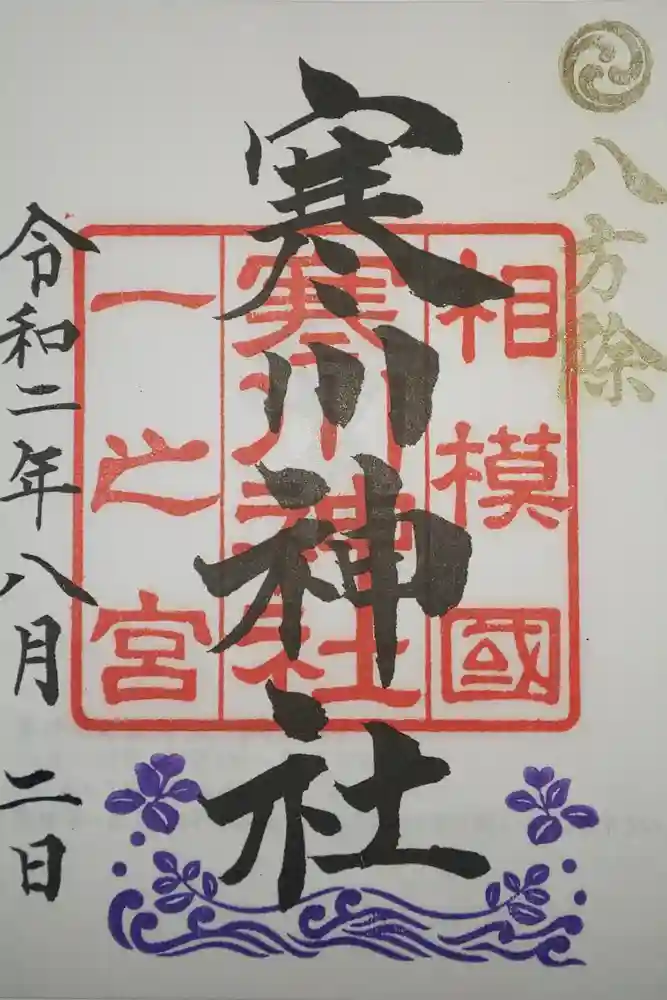 八方除
相模國
寒川神社
一之宮
寒川神社
令和二年八月二日